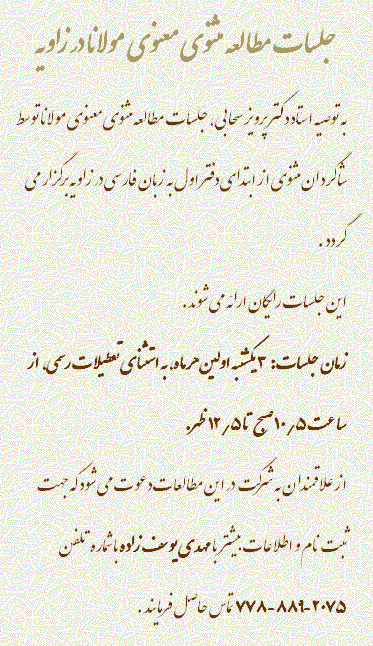 جلسات مطالعه مثنوی معنوی مولانا در زاویه
به توصیه استاد دکتر پرویز سحابی، جلسات مطالعه مثنوی معنوی مولانا توسط
شاگردان مثنوی از ابتدای دفتر اول به زبان فارسی در زاویه برگزار می
گردد .
این جلسات رایگان ارائه می شوند .
زمان جلسات: ۳ یکشنبه اولین هر ماه، به استثنای تعطیلات رسمی، از
ساعت ۱۰٫۵ صبح تا ۱۲٫۵ ظهر.
از علاقمندان به شرکت در این مطالعات دعوت می شود که جهت
ثبت نام و اطلاعات بیشتر با مهدی یوسف زاده با شماره تلفن
۷۷۸-۸۸۹-۲۰۷۵ تماس حاصل فرمایند .